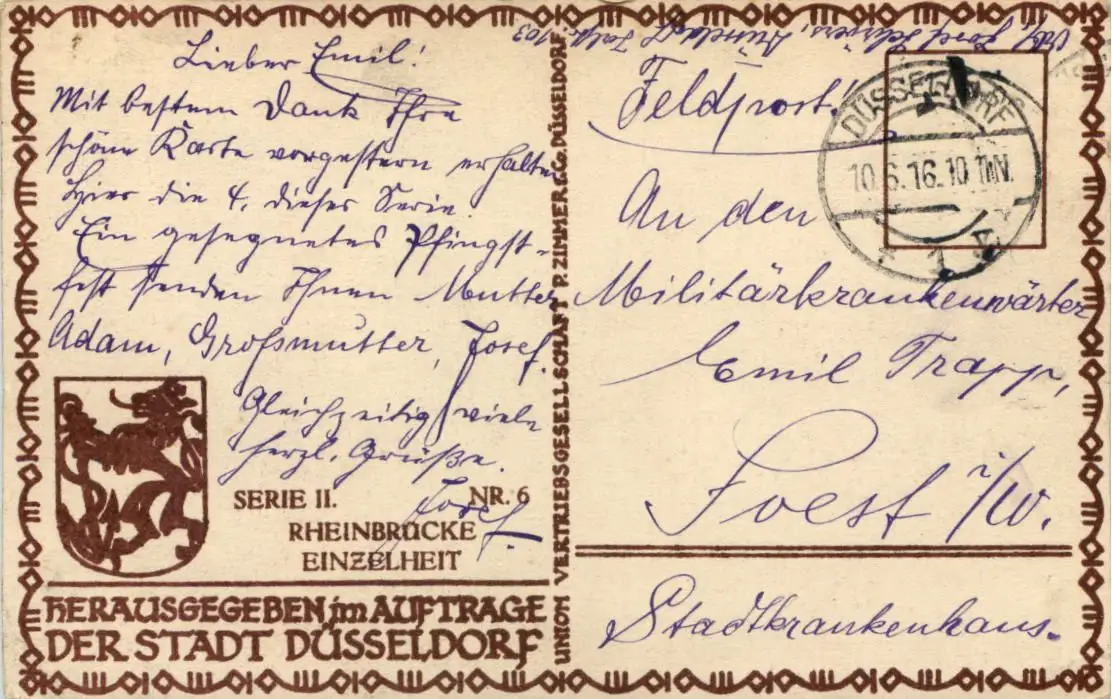 Lieber Emil!
Mit bestem Dank Ihre
schöne Karte vorgestern erhalten
Hier die 4. dieser Serie.
Ein gesegnetes Pfingst-
fest senden Ihnen Mutter
Adam, Großmutter, Josef.
Gleichzeitig viele
herzl. Grüße.
Josef.
SERIE II. NR. 6
RHEINBRÜCKE
EINZELHEIT
HERAUSGEGEBEN im AUFTRAGE
DER STADT DÜSSELDORF
UNION VERTRIEBSGESELLSCHAFT P. ZIMMER & Co. DÜSSELDORF
Josef Düsseldorf 103
Feldpost!
DÜSSELDORF
10.6.16.10-11N.
* 1
An den
Militärkrankenwärter
Emil Trapp,
Soest i/W.
Stadtkrankenhaus.